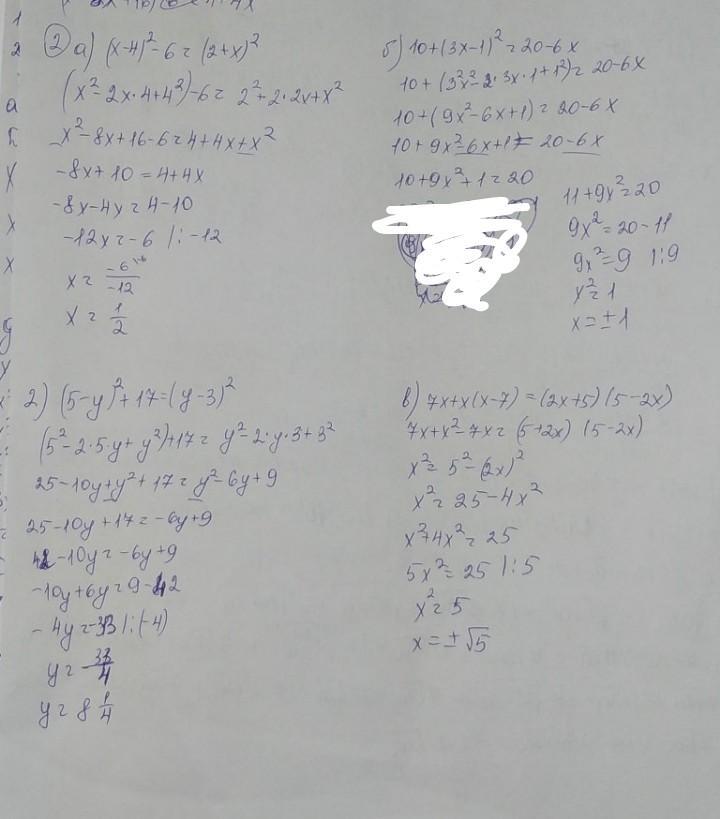 ② а) (x-4)² - 6 = (2+x)²
(x² - 2x·4 + 4²) - 6 = 2² + 2·2x + x²
x² - 8x + 16 - 6 = 4 + 4x + x²
-8x + 10 = 4 + 4x
-8x - 4x = 4 - 10
-12x = -6 |: -12
x = -6/-12
x = 1/2
б) 10 + (3x-1)² = 20 - 6x
10 + (3²x² - 2·3x·1 + 1²) = 20 - 6x
10 + (9x² - 6x + 1) = 20 - 6x
10 + 9x² - 6x + 1 = 20 - 6x
10 + 9x² + 1 = 20
11 + 9x² = 20
9x² = 20 - 11
9x² = 9 |:9
x² = 1
x = ±1
г) (5-y)² + 17 = (y-3)²
(5² - 2·5·y + y²) + 17 = y² - 2·y·3 + 3²
25 - 10y + y² + 17 = y² - 6y + 9
25 - 10y + 17 = -6y + 9
42 - 10y = -6y + 9
-10y + 6y = 9 - 42
-4y = -33 |:(-4)
y = 33/4
y = 8 1/4
в) 7x + x(x-7) = (2x+5)(5-2x)
7x + x² - 7x = (5+2x)(5-2x)
x² = 5² - (2x)²
x² = 25 - 4x²
x² + 4x² = 25
5x² = 25 |:5
x² = 5
x = ±√5